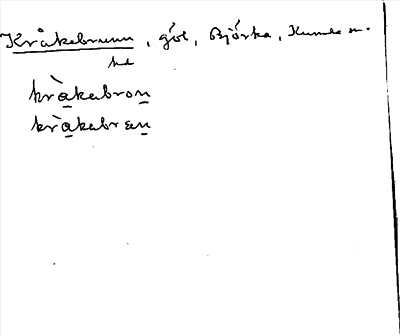 Kråkebrunn, göl, Björka, Kumla sn.
kràkabron
kràkabrøn